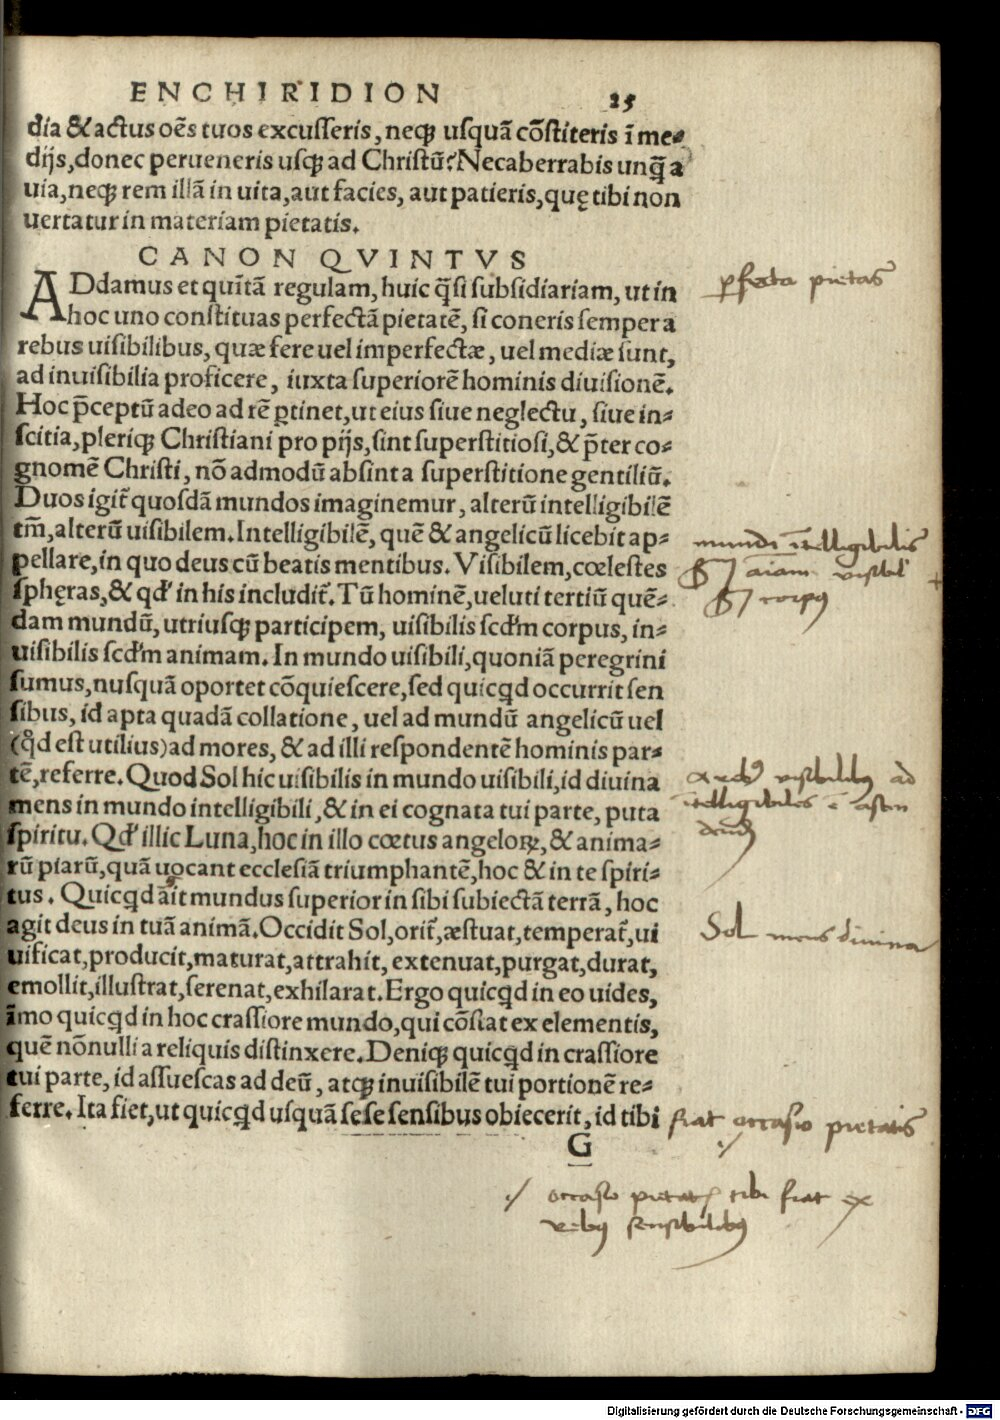 ENCHIRIDION 25
dia & actus oēs tuos excusseris, neqꝫ usquā cōstiteris ī me⸗
dijs, donec perueneris usqꝫ ad Christū? Nec aberrabis unq̄ a
uia, neqꝫ rem illā in uita, aut facies, aut patieris, quę tibi non
uertatur in materiam pietatis.
CANON QVINTVS
ADdamus et quītā regulam, huic q̄si subsidiariam, ut in
hoc uno constituas perfectā pietatē, si coneris semper a
rebus uisibilibus, quæ fere uel imperfectæ, uel mediæ sunt,
ad inuisibilia proficere, iuxta superiorē hominis diuisionē.
Hoc p̄ceptū adeo ad rē ꝑtinet, ut eius siue neglectu, siue in⸗
scitia, pleriqꝫ Christiani pro pijs, sint superstitiosi, & p̄ter co⸗
gnomē Christi, nō admodū absint a superstitione gentiliū.
Duos igit̃ quosdā mundos imaginemur, alterū intelligibilē
tm̄, alterū uisibilem. Intelligibilē, quē & angelicū licebit ap⸗
pellare, in quo deus cū beatis mentibus. Visibilem, cœlestes
sphęras, & qd' in his includit̃. Tū hominē, ueluti tertiū quē⸗
dam mundū, utriusqꝫ participem, uisibilis scd'm corpus, in⸗
uisibilis scd'm animam. In mundo uisibili, quoniā peregrini
sumus, nusquā oportet cōquiescere, sed quicqd occurrit sen
sibus, id apta quadā collatione, uel ad mundū angelicū uel
(qd est utilius) ad mores, & ad illi respondentē hominis par⸗
tē, referre. Quod Sol hic uisibilis in mundo uisibili, id diuina
mens in mundo intelligibili, & in ei cognata tui parte, puta
spiritu. Qd' illic Luna, hoc in illo cœtus angeloꝝ, & anima⸗
rū piarū, quā uocant ecclesiā triumphantē, hoc & in te spiri⸗
tus. Quicqd āit mundus superior in sibi subiectā terrā, hoc
agit deus in tuā animā. Occidit Sol, orit̃, æstuat, temperat̃, ui
uificat, producit, maturat, attrahit, extenuat, purgat, durat,
emollit, illustrat, serenat, exhilarat. Ergo quicqd in eo uides,
īmo quicqd in hoc crassiore mundo, qui cōstat ex elementis,
quē nōnulli a reliquis distinxere. Deniqꝫ quicqd in crassiore
tui parte, id assuescas ad deū, atqꝫ inuisibilē tui portionē re⸗
ferre. Ita fiet, ut quicqd usquā sese sensibus obiecerit, id tibi
G
ꝑfecta pietas
mundi ītelligibilis
aīam visibil'
corpꝰ
a rebꝰ visibilibꝰ ad
ītelligibiles ē
Sol mens diuina
fiat occasio pietatis
./ occasio pietatis tibi fiat ex
rebꝰ sensibilibꝰ
Digitalisierung gefördert durch die Deutsche Forschungsgemeinschaft - DFG